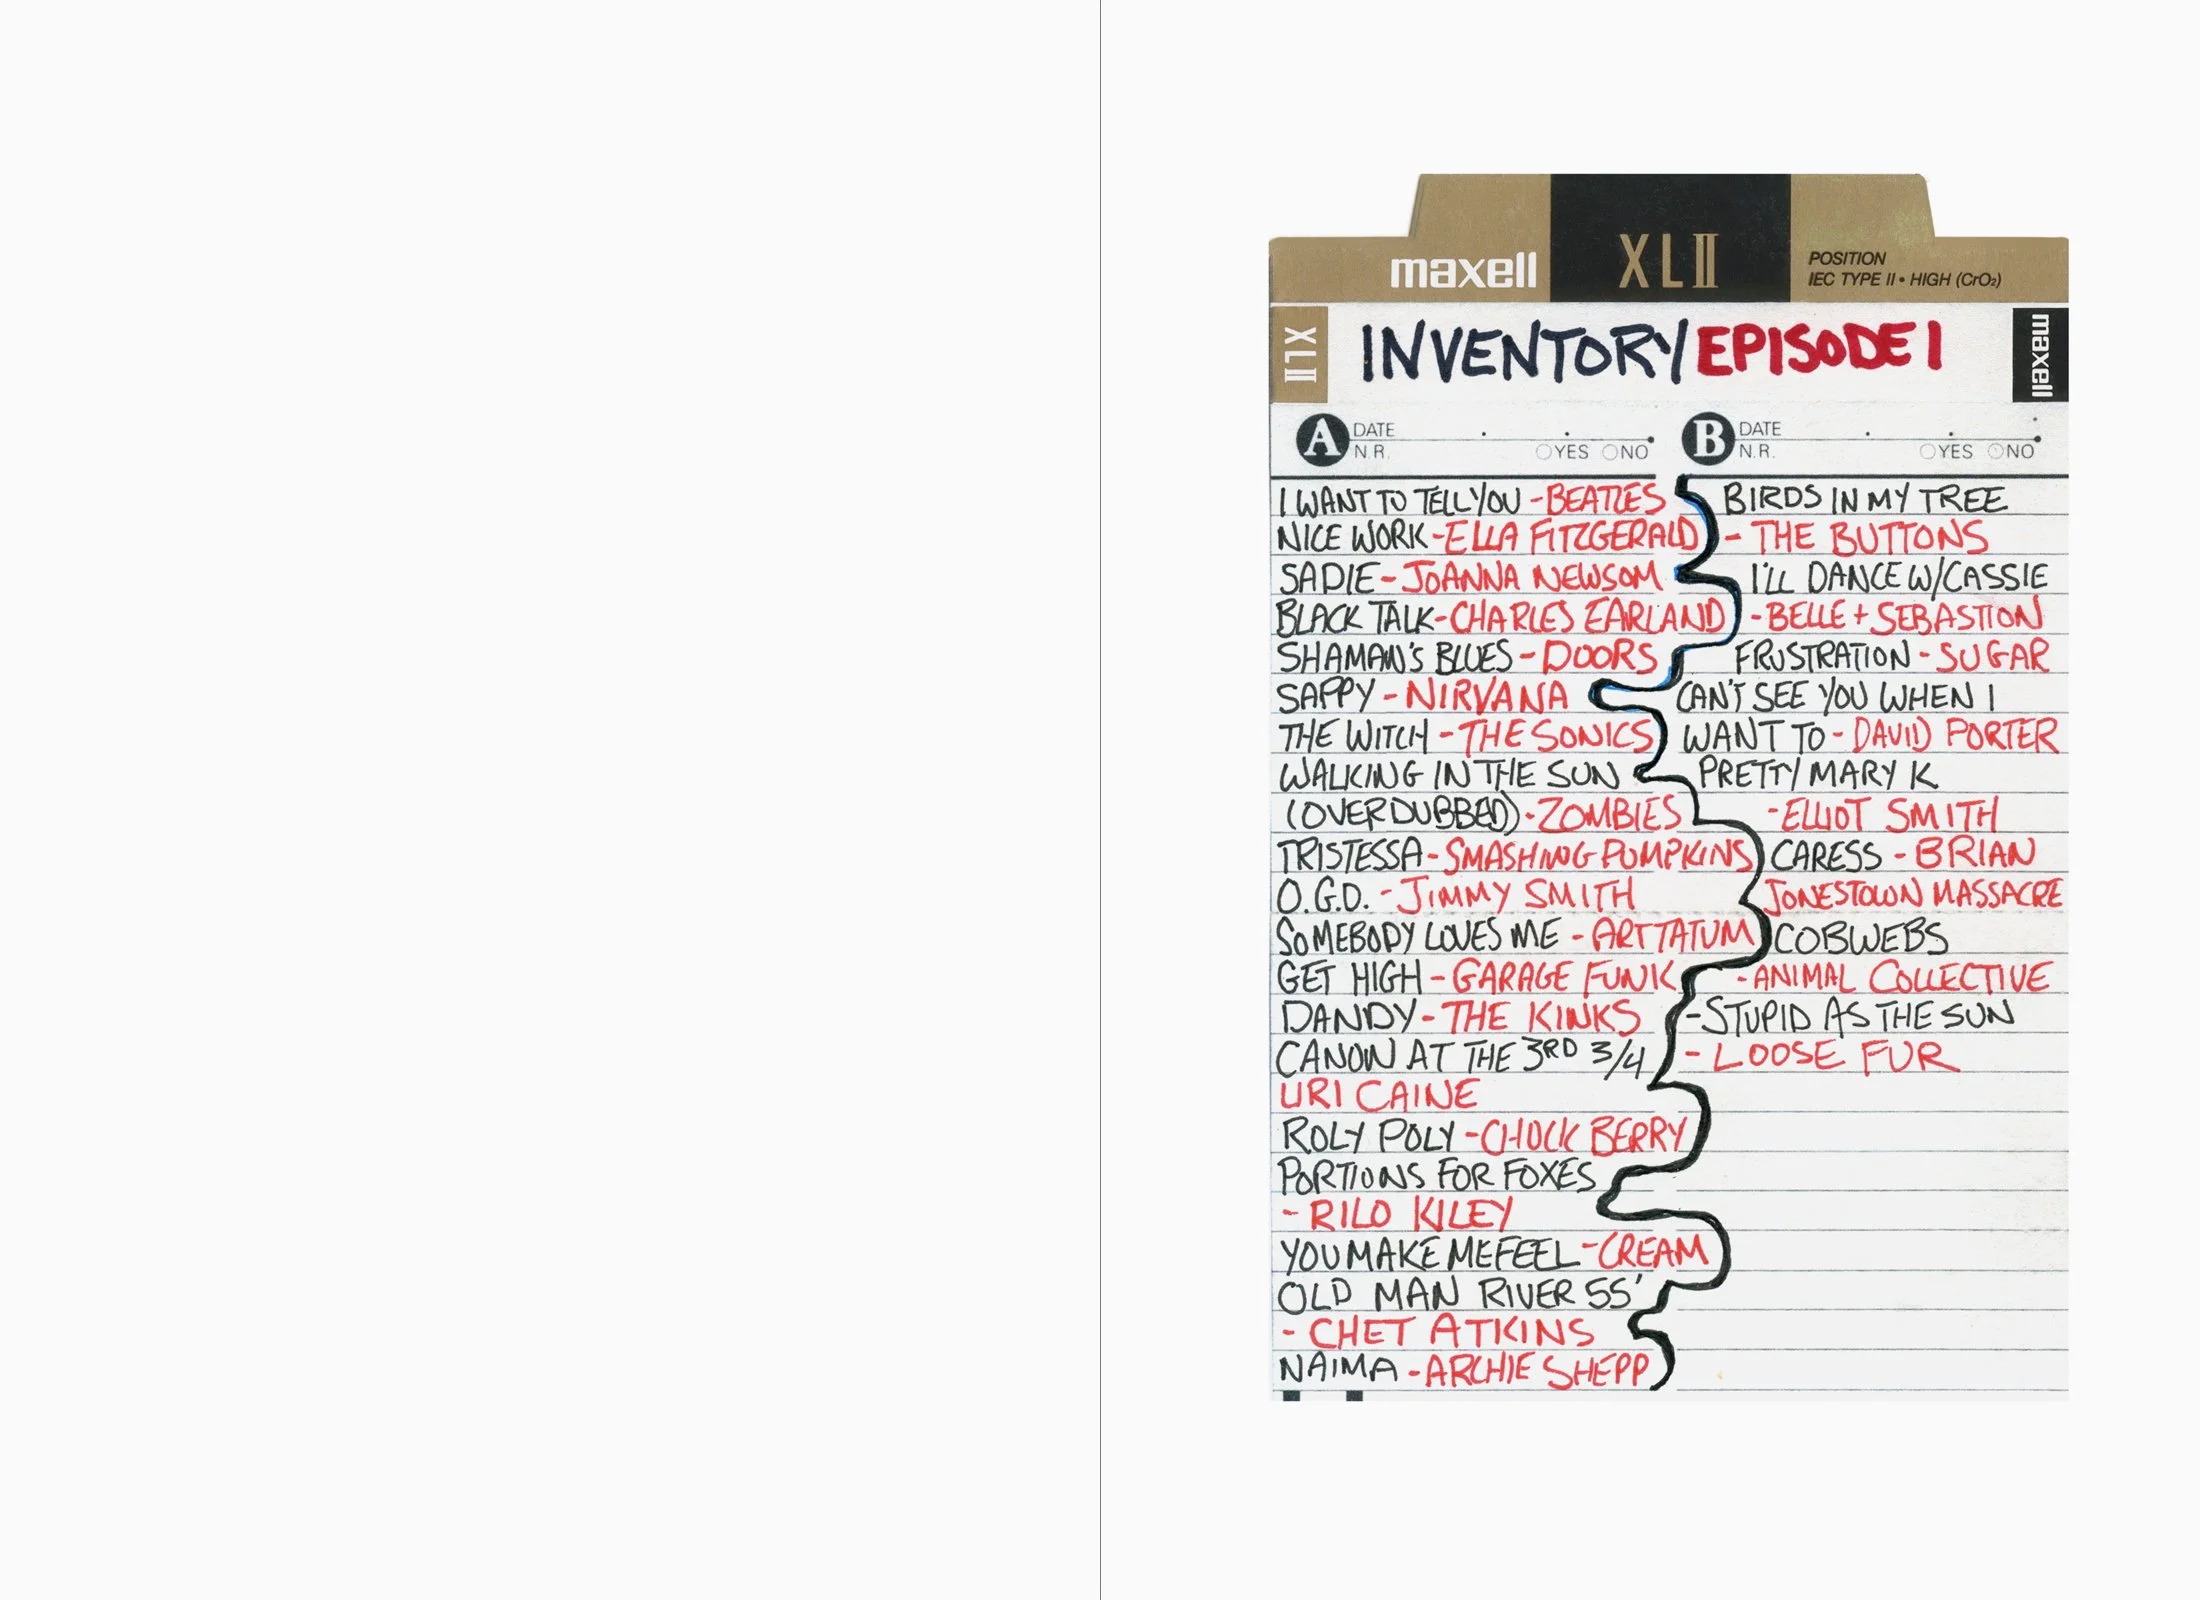 maxell XLII POSITION
IEC TYPE II • HIGH (CrO₂)
XLII INVENTORY EPISODE 1 maxell
A DATE
N.R. YES NO
I WANT TO TELL YOU - BEATLES
NICE WORK - ELLA FITZGERALD
SADIE - JOANNA NEWSOM
BLACK TALK - CHARLES EARLAND
SHAMAN'S BLUES - DOORS
SAPPY - NIRVANA
THE WITCH - THE SONICS
WALKING IN THE SUN
(OVERDUBBED) - ZOMBIES
TRISTESSA - SMASHING PUMPKINS
O.G.D. - JIMMY SMITH
SOMEBODY LOVES ME - ART TATUM
GET HIGH - GARAGE FUNK
DANDY - THE KINKS
CANON AT THE 3RD 3/4
URI CAINE
ROLY POLY - CHUCK BERRY
PORTIONS FOR FOXES
- RILO KILEY
YOU MAKE ME FEEL - CREAM
OLD MAN RIVER 55'
- CHET ATKINS
NAIMA - ARCHIE SHEPP
B DATE
N.R. YES NO
BIRDS IN MY TREE
- THE BUTTONS
I'LL DANCE W/CASSIE
- BELLE + SEBASTION
FRUSTRATION - SUGAR
CAN'T SEE YOU WHEN I
WANT TO - DAVID PORTER
PRETTY MARY K
- ELLIOT SMITH
CARESS - BRIAN
JONESTOWN MASSACRE
COBWEBS
- ANIMAL COLLECTIVE
- STUPID AS THE SUN
- LOOSE FUR